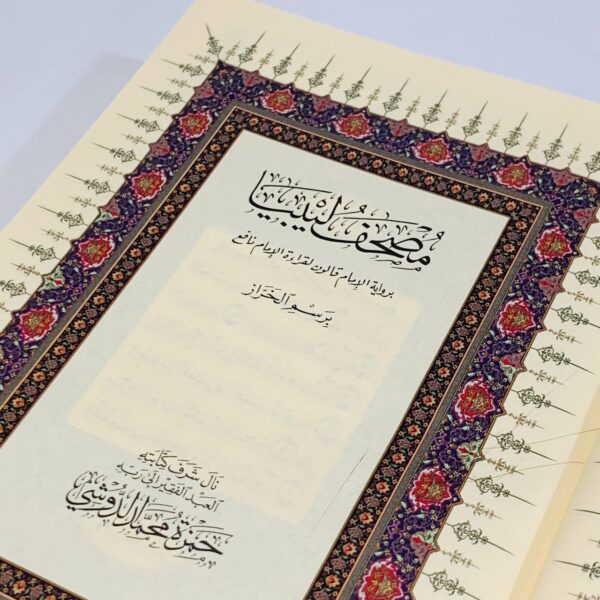 مُصْحَفُ لِيبْيَا
برواية الإمام قالون لقراءة الإمام نافع
بِرَسْمِ الخَرَّاز
نَالَ شَرَفَ كِتَابَتِهِ
العبد الفقير إلى ربه
حَمْزَة مُحَمَّد الدُّوشِي